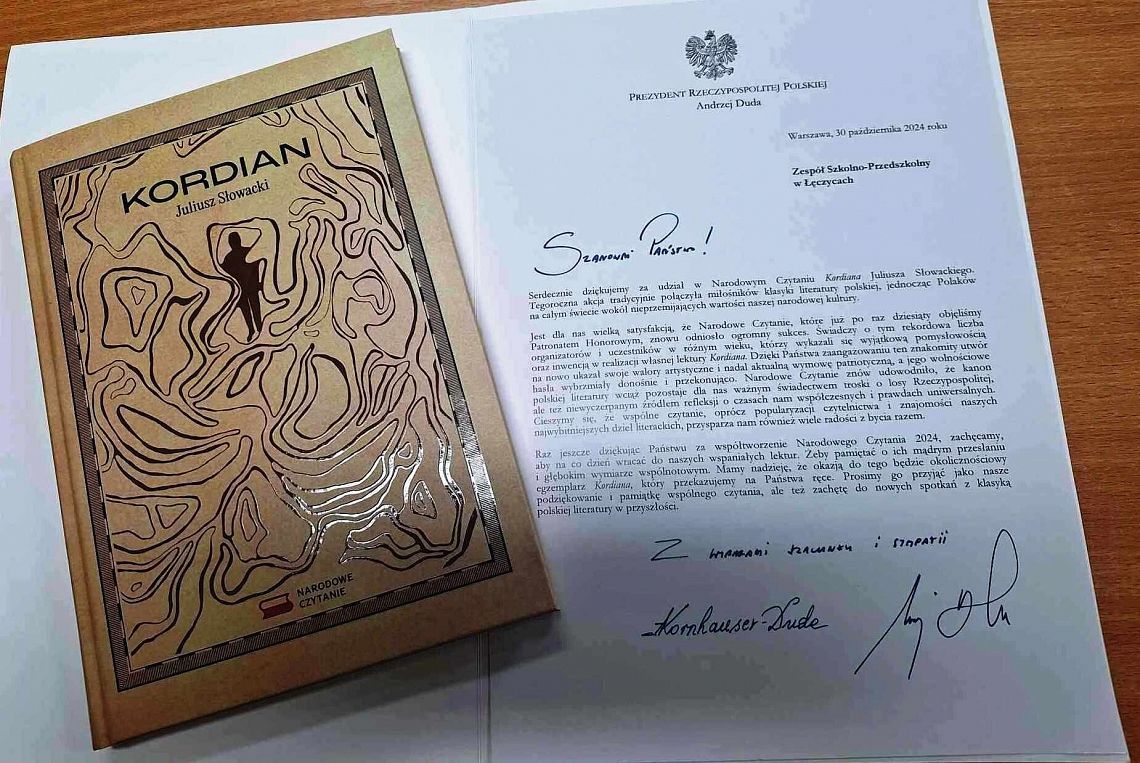 KORDIAN
Juliusz Słowacki
NARODOWE
CZYTANIE
PREZYDENT RZECZYPOSPOLITEJ POLSKIEJ
Andrzej Duda
Warszawa, 30 października 2024 roku
Zespół Szkolno-Przedszkolny
w Łęczycach
Szanowni Państwo!
Serdecznie dziękujemy za udział w Narodowym Czytaniu Kordiana Juliusza Słowackiego.
Tegoroczna akcja tradycyjnie połączyła miłośników klasyki literatury polskiej, jednocząc Polaków
na całym świecie wokół nieprzemijających wartości naszej narodowej kultury.
Jest dla nas wielką satysfakcją, że Narodowe Czytanie, które już po raz dziesiąty objęliśmy
Patronatem Honorowym, znowu odniosło ogromny sukces. Świadczy o tym rekordowa liczba
organizatorów i uczestników w różnym wieku, którzy wykazali się wyjątkową pomysłowością
oraz inwencją w realizacji własnej lektury Kordiana. Dzięki Państwa zaangażowaniu ten znakomity utwór
na nowo ukazał swoje walory artystyczne i nadal aktualną wymowę patriotyczną, a jego wolnościowe
hasła wybrzmiały donośnie i przekonująco. Narodowe Czytanie znów udowodniło, że kanon
polskiej literatury wciąż pozostaje dla nas ważnym świadectwem troski o losy Rzeczypospolitej,
ale też niewyczerpanym źródłem refleksji o czasach nam współczesnych i prawdach uniwersalnych.
Cieszymy się, że wspólne czytanie, oprócz popularyzacji czytelnictwa i znajomości naszych
najwybitniejszych dzieł literackich, przysparza nam również wiele radości z bycia razem.
Raz jeszcze dziękując Państwu za współtworzenie Narodowego Czytania 2024, zachęcamy,
aby na co dzień wracać do naszych wspaniałych lektur. Żeby pamiętać o ich mądrym przesłaniu
i głębokim wymiarze wspólnotowym. Mamy nadzieję, że okazją do tego będzie okolicznościowy
egzemplarz Kordiana, który przekazujemy na Państwa ręce. Prosimy go przyjąć jako nasze
podziękowanie i pamiątkę wspólnego czytania, ale też zachętę do nowych spotkań z klasyką
polskiej literatury w przyszłości.
Z wyrazami szacunku i sympatii
Kornhauser-Duda